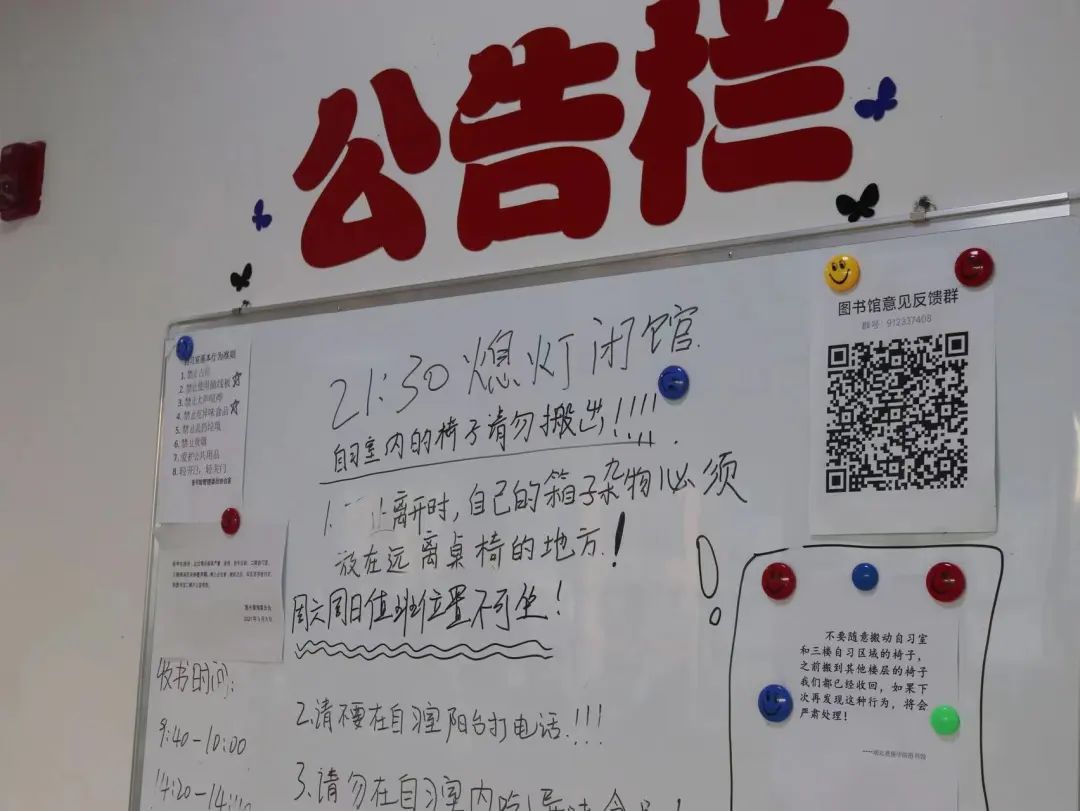 公告栏
21:30熄灯闭馆.
自习室内的椅子请勿搬出!!!!!!.
1. 止离开时,自己的箱子杂物必须
放在远离桌椅的地方.!
周六周日值班位置不可坐!
2.请不要在自习室阳台打电话.!!!
3.请勿在自习室内吃
自习室基本行为准则
1.禁止占座
2.禁止使用插线板
3.禁止大声喧哗
4.禁止吃异味食品
5.禁止乱扔垃圾
6.禁止吸烟
7.爱护公共用品
8.轻开门,轻关门
收书时间:
9:40-10:00
14:20-14:
图书馆意见反馈群
群号:912337408
不要随意搬动自习室
和三楼自习区域的椅子,
之前搬到其他楼层的椅子
我们都已经收回,如果下
次再发现这种行为,将会
严肃处理!